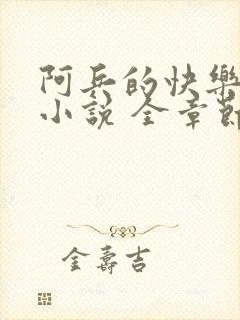 阿兵的快樂
小說 全章節
金壽吉